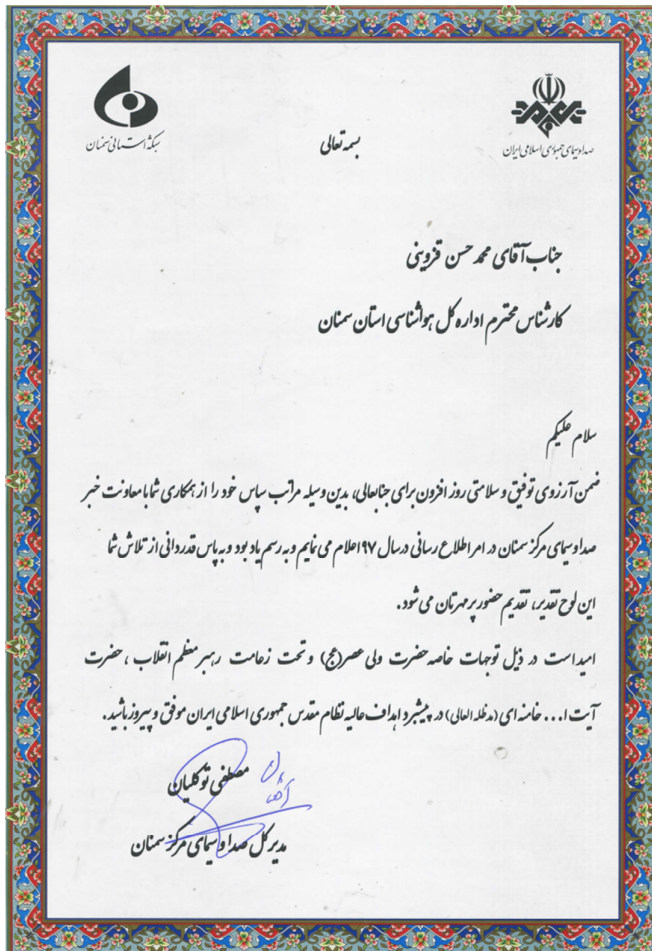 صدا و سیمای جمهوری اسلامی ایران
شبکه استانی سمنان
بسمه تعالی
جناب آقای محمد حسن قزوینی
کارشناس محترم اداره کل هواشناسی استان سمنان
سلام علیکم
ضمن آرزوی توفیق و سلامتی روز افزون برای جنابعالی، بدین وسیله مراتب سپاس خود را از همکاری شما با معاونت خبر
صدا و سیمای مرکز سمنان در امر اطلاع رسانی در سال ۹۷ اعلام می نمایم و به رسم یاد بود و به پاس قدردانی از تلاش شما
این لوح تقدیر، تقدیم حضور پر مهرتان می شود.
امید است در ذیل توجهات خاصه حضرت ولی عصر(عج) و تحت زعامت رهبر معظم انقلاب ، حضرت
آیت ا... خامنه ای (مدظله العالی) در پیشبرد اهداف عالیه نظام مقدس جمهوری اسلامی ایران موفق و پیروز باشید.
مصطفی توکلیان
مدیر کل صدا و سیمای مرکز سمنان